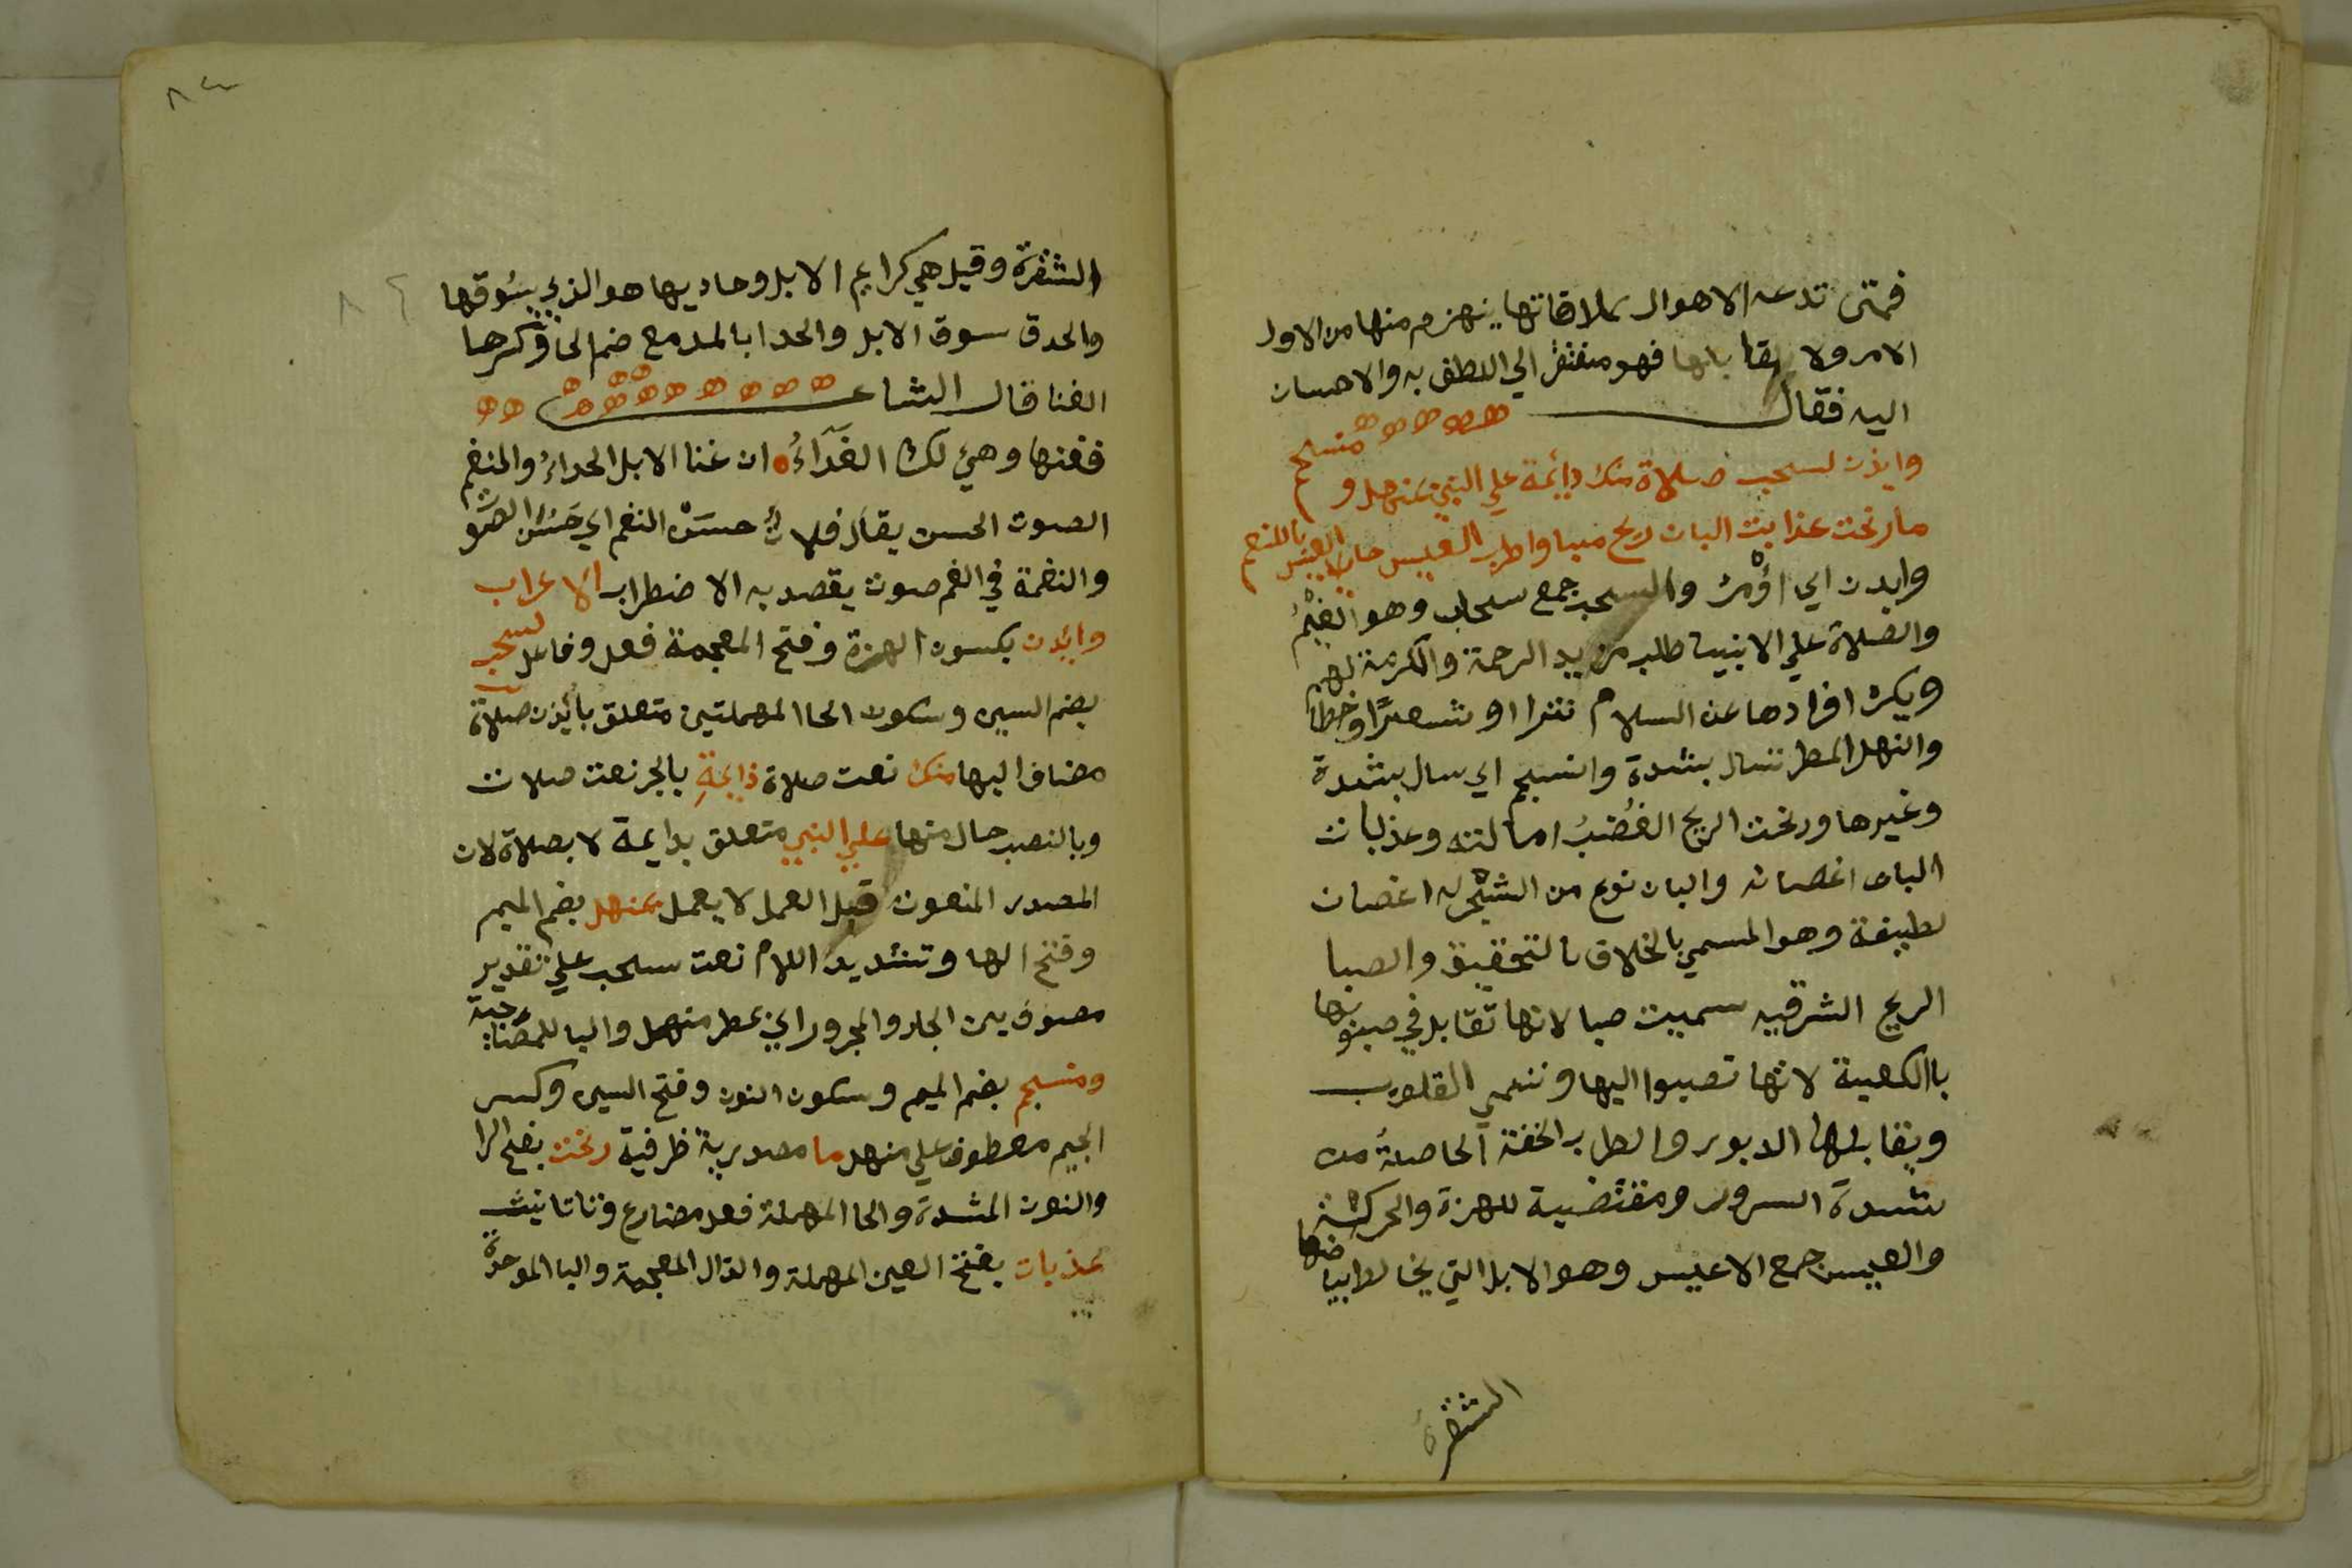 فمتى تدعه الاهوال بملاقاتها ينهزم منها من الاول
الامر ولا يقابلها فهو مفتقر الي اللطف به والاحسان
اليه فقال
وايذن لسحب صلاة منك دائمة علي النبي بمنهل ومنسجم
ما رنحت عذابت البان ريح صبا واطرب العيس حادي العيس بالنغم
وايذن اي اؤمر والسحب جمع سحاب وهو الغيم
والصلاة علي الانبيا طلب مزيد الرحمة والكرمة لهم
ويكره افرادها عن السلام نثرا او شعرا وخطا
وانهل المطر نسال بشدة وانسجم اي سال بشدة
وغيرها ورنحت الريح الغضب امالته وعذبات
البان اغصانه والبان نوع من الشجر له اغصان
لطيفة وهو المسمي بالخلاف بالتحقيق والصبا
الريح الشرقيه سميت صبا لانها تقابل في صبوبها
باالكعبة لانها تصبوا اليها وتنمي القلوب
ويقابلها الدبور والطرب الخفة الحاصلة من
شدة السرور ومقتضية للهزة والحركة
والعيس جمع الاعيس وهو الابل التي يخالط بياضها
الشقرة
٨٣
الشقرة وقيل هي كرايم الابل وحاديها هو الذي يسوقها
والحدو سوق الابل والحدا بالمد مع ضم الحا وكسرها
الغنا قال الشاعر
فغنها وهي لك الفداء ان غنا الابل الحداء والنغم
الصوت الحسن يقال فلان حسن النغم اي حسن الصوت
والنغمة في الفم صوت يقصد به الاضطراب الاعراب
وايذن بكسون الهمزة وفتح المعجمة فعل وفاعل لسحب
بضم السين وسكون الحا المهملتين متعلق بائذن صلاة
مضاف اليها منك نعت صلاة دايمة بالجر نعت صلات
وبالنصب حال منها علي النبي متعلق بدايمة لا بصلاة لان
المصدر المنعوت قبل العمل لا يعمل بمنهل بضم الميم
وفتح الها وتشديد اللام نعت سحب علي تقدير
موصوف بين الجار والمجرور اي بمطر منهل والبا للمصاحبة
ومنسجم بضم الميم وسكون النون وفتح السين وكسر
الجيم معطوف علي منهل ما مصدرية ظرفية رنحت بفتح الرا
والنون المشدة والحا المهملة فعل مضارع وتا تانيث
عذبات بفتح العين المهملة والذال المعجمة والبا الموحدة